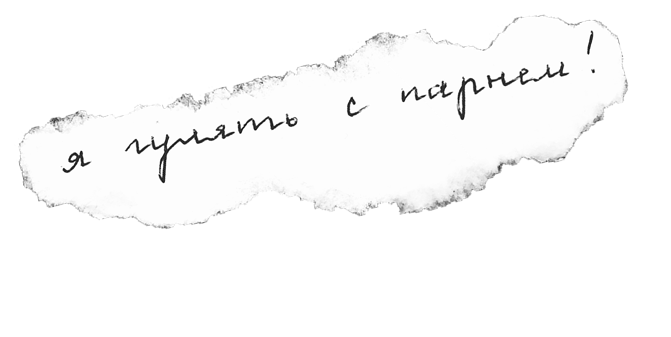 я гулять с парнем!